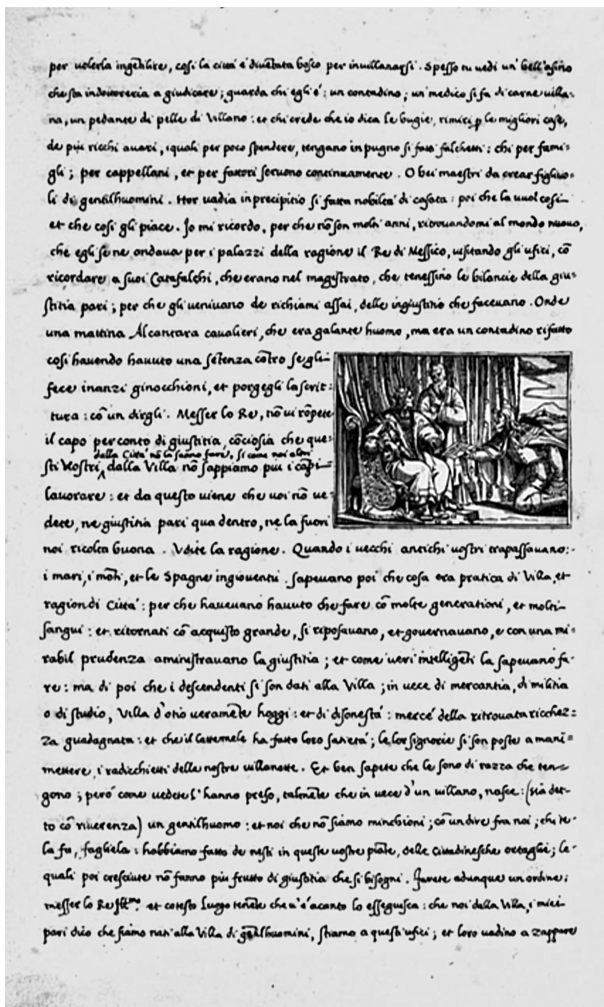 per volerla ingẽtilire, cosi la citta è diuẽtata bosco per inuillanarsi. Spesso tu vedi un' bell'asino
che sta in dottoreria a giudicare; guarda chi egli é: un contadino; un' medico si fa di carne uilla=
na, un pedante di pelle di Villano: et chi crede che io dica le bugie, rimiri ꝑ le migliori case,
de piu ricchi auari, iquali per poco spendere, tengano in pugno si fatti falchetti: chi per fami=
gli; per cappellani, et per fattori seruono continuamente. O bei maestri da crear figliuo=
li di gentilhuomini. Hor uadia in precipitio si fatta nobiltà di casata: poi che la uuol cosi
et che cosi gli piace. Io mi ricordo, per che nõ son molti anni, ritrouandomi al mondo nuouo,
che egli se ne andaua per i palazzi della ragione il Re di Messico, uisitando gli ufiti, cõ
ricordare a suoi Catafalchi, che erano nel magistrato, che tenessino le bilancie della giu=
stitia pari; per che gli veniuano de richiami assai, delle ingiustitie che faceuano. Onde
una mattina Alcantara caualieri, che era galante huomo, ma era un contadino rifatto
cosi hauendo hauuto una sẽtenza cõtro se gli
fece inanzi ginocchioni, et porgegli la scrit=
tura: cõ un dirgli. Messer lo Re, nõ ui rõpete
il capo per conto di giustitia, cõciosia che que=
della Città nõ la sanno fare, si come noi altri
sti Vostri dalla Villa nõ sappiamo piu i cãpi
lauorare: et da questo uiene che uoi nõ ue=
dete, ne giustitia pari qua dentro, ne la fuori
noi ricolta buona. Vdite la ragione. Quando i uecchi antichi uostri trapassauano
i mari, i mõti, et le Spagne ingioventi. sapeuano poi che cosa era pratica di Villa, et
ragion di Città: per che haueuano hauuto che fare cõ molte generationi, et molti
sangui: et ritornati cõ acquisto grande, si riposauano, et gouernauano, e con una mi=
rabil prudenza aministrauano la giustitia; et come ueri intelligẽti la sapeuano fa=
re: ma di poi che i descendenti si son dati alla Villa; in uece di mercantia, di militia
o di studio, Villa d'otio ueramẽte hoggi: et di disonestà: mercé della ritrouata ricchez=
za guadagnata: et che il lattemele ha fatto loro sanità; le lor signorie si son poste a mani=
mettere, i radicchietti delle nostre uillanotte. Et ben sapete che le sono di razza che ten=
gono; peró come vedete l'hanno preso, talmẽte che in uece d'un uillano, nasce: (sia det=
to cõ riuerenza) un gentilhuomo: et noi che nõ siamo minchioni; cõ un dire fra noi; chi te
la fa, fagliela: habbiamo fatto de nesti in queste uostre piãte, delle Cittadinesche ortaglie; le
quali poi cresciute nõ fanno piu frutto di giustitia che si bisogni. Farete adunque un ordine;
messer lo Re Illmo et cotesto Luogo tenẽte che u'è acanto lo esseguisca: che noi dalla Villa, i miei
pari dico che siamo nati alla Villa di gẽtilhuomini, stiamo a questi ufiti; et loro uadino a zappare